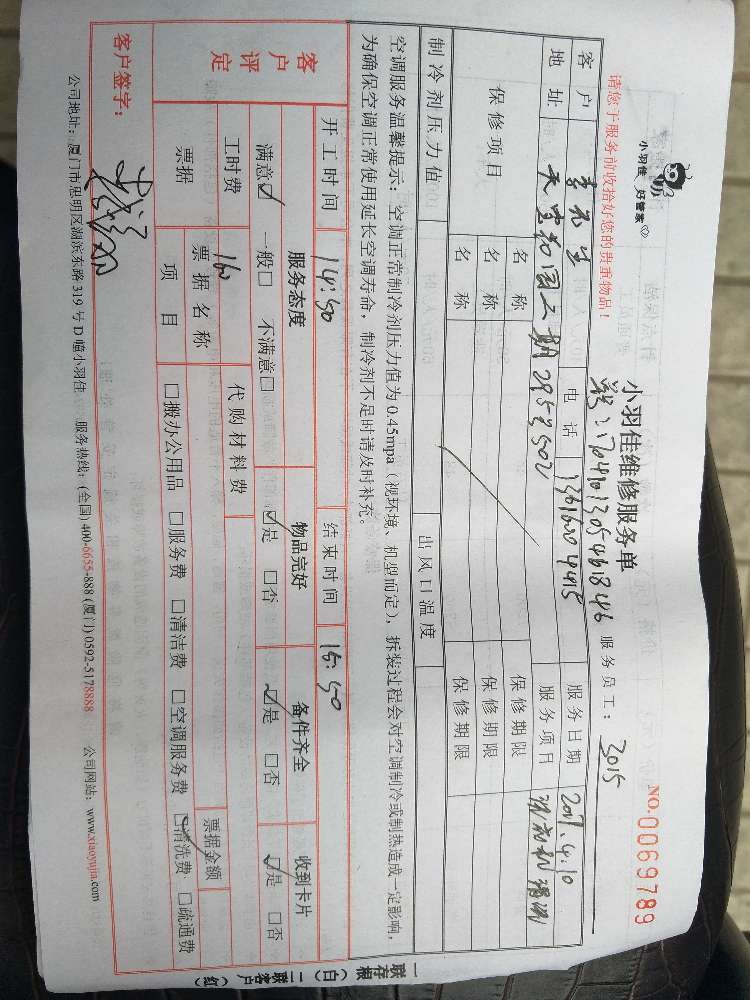 小羽佳 好管家
小羽佳维修服务单
NO.0069789
17041013054961846
请您于服务前收拾好您的贵重物品！
服务员工： 3015
客户 李先生 电话 13616004415 服务日期 2017.4.10
地址 天宝花园二期295号502 服务项目 清洗
保修项目 名称 保修期限
名称 保修期限
名称 保修期限
制冷剂压力值 出风口温度
空调服务温馨提示：空调正常制冷剂压力值为0.45mpa（视环境、机型而定），拆装过程会对空调制冷或制热造成一定影响，
为确保空调正常使用延长空调寿命，制冷剂不足时请及时补充。
开工时间 14:50 结束时间 15:50
客户评定 服务态度 物品完好 备件齐全 收到卡片
满意☑ 一般□ 不满意□ ☑是 □否 ☑是 □否 ☑是 □否
工时费 160 代购材料费
票据 票据名称 票据金额
项目 □搬办公用品 □服务费 □清洁费 □空调服务费 ☑清洗费 □疏通费
客户签字：
公司地址：厦门市思明区湖滨东路319号D幢小羽佳 服务热线：(全国) 400-6655-888 (厦门) 0592-5178888 公司网站：www.xiaoyujia.com
一联存根（白）二联客户（红）